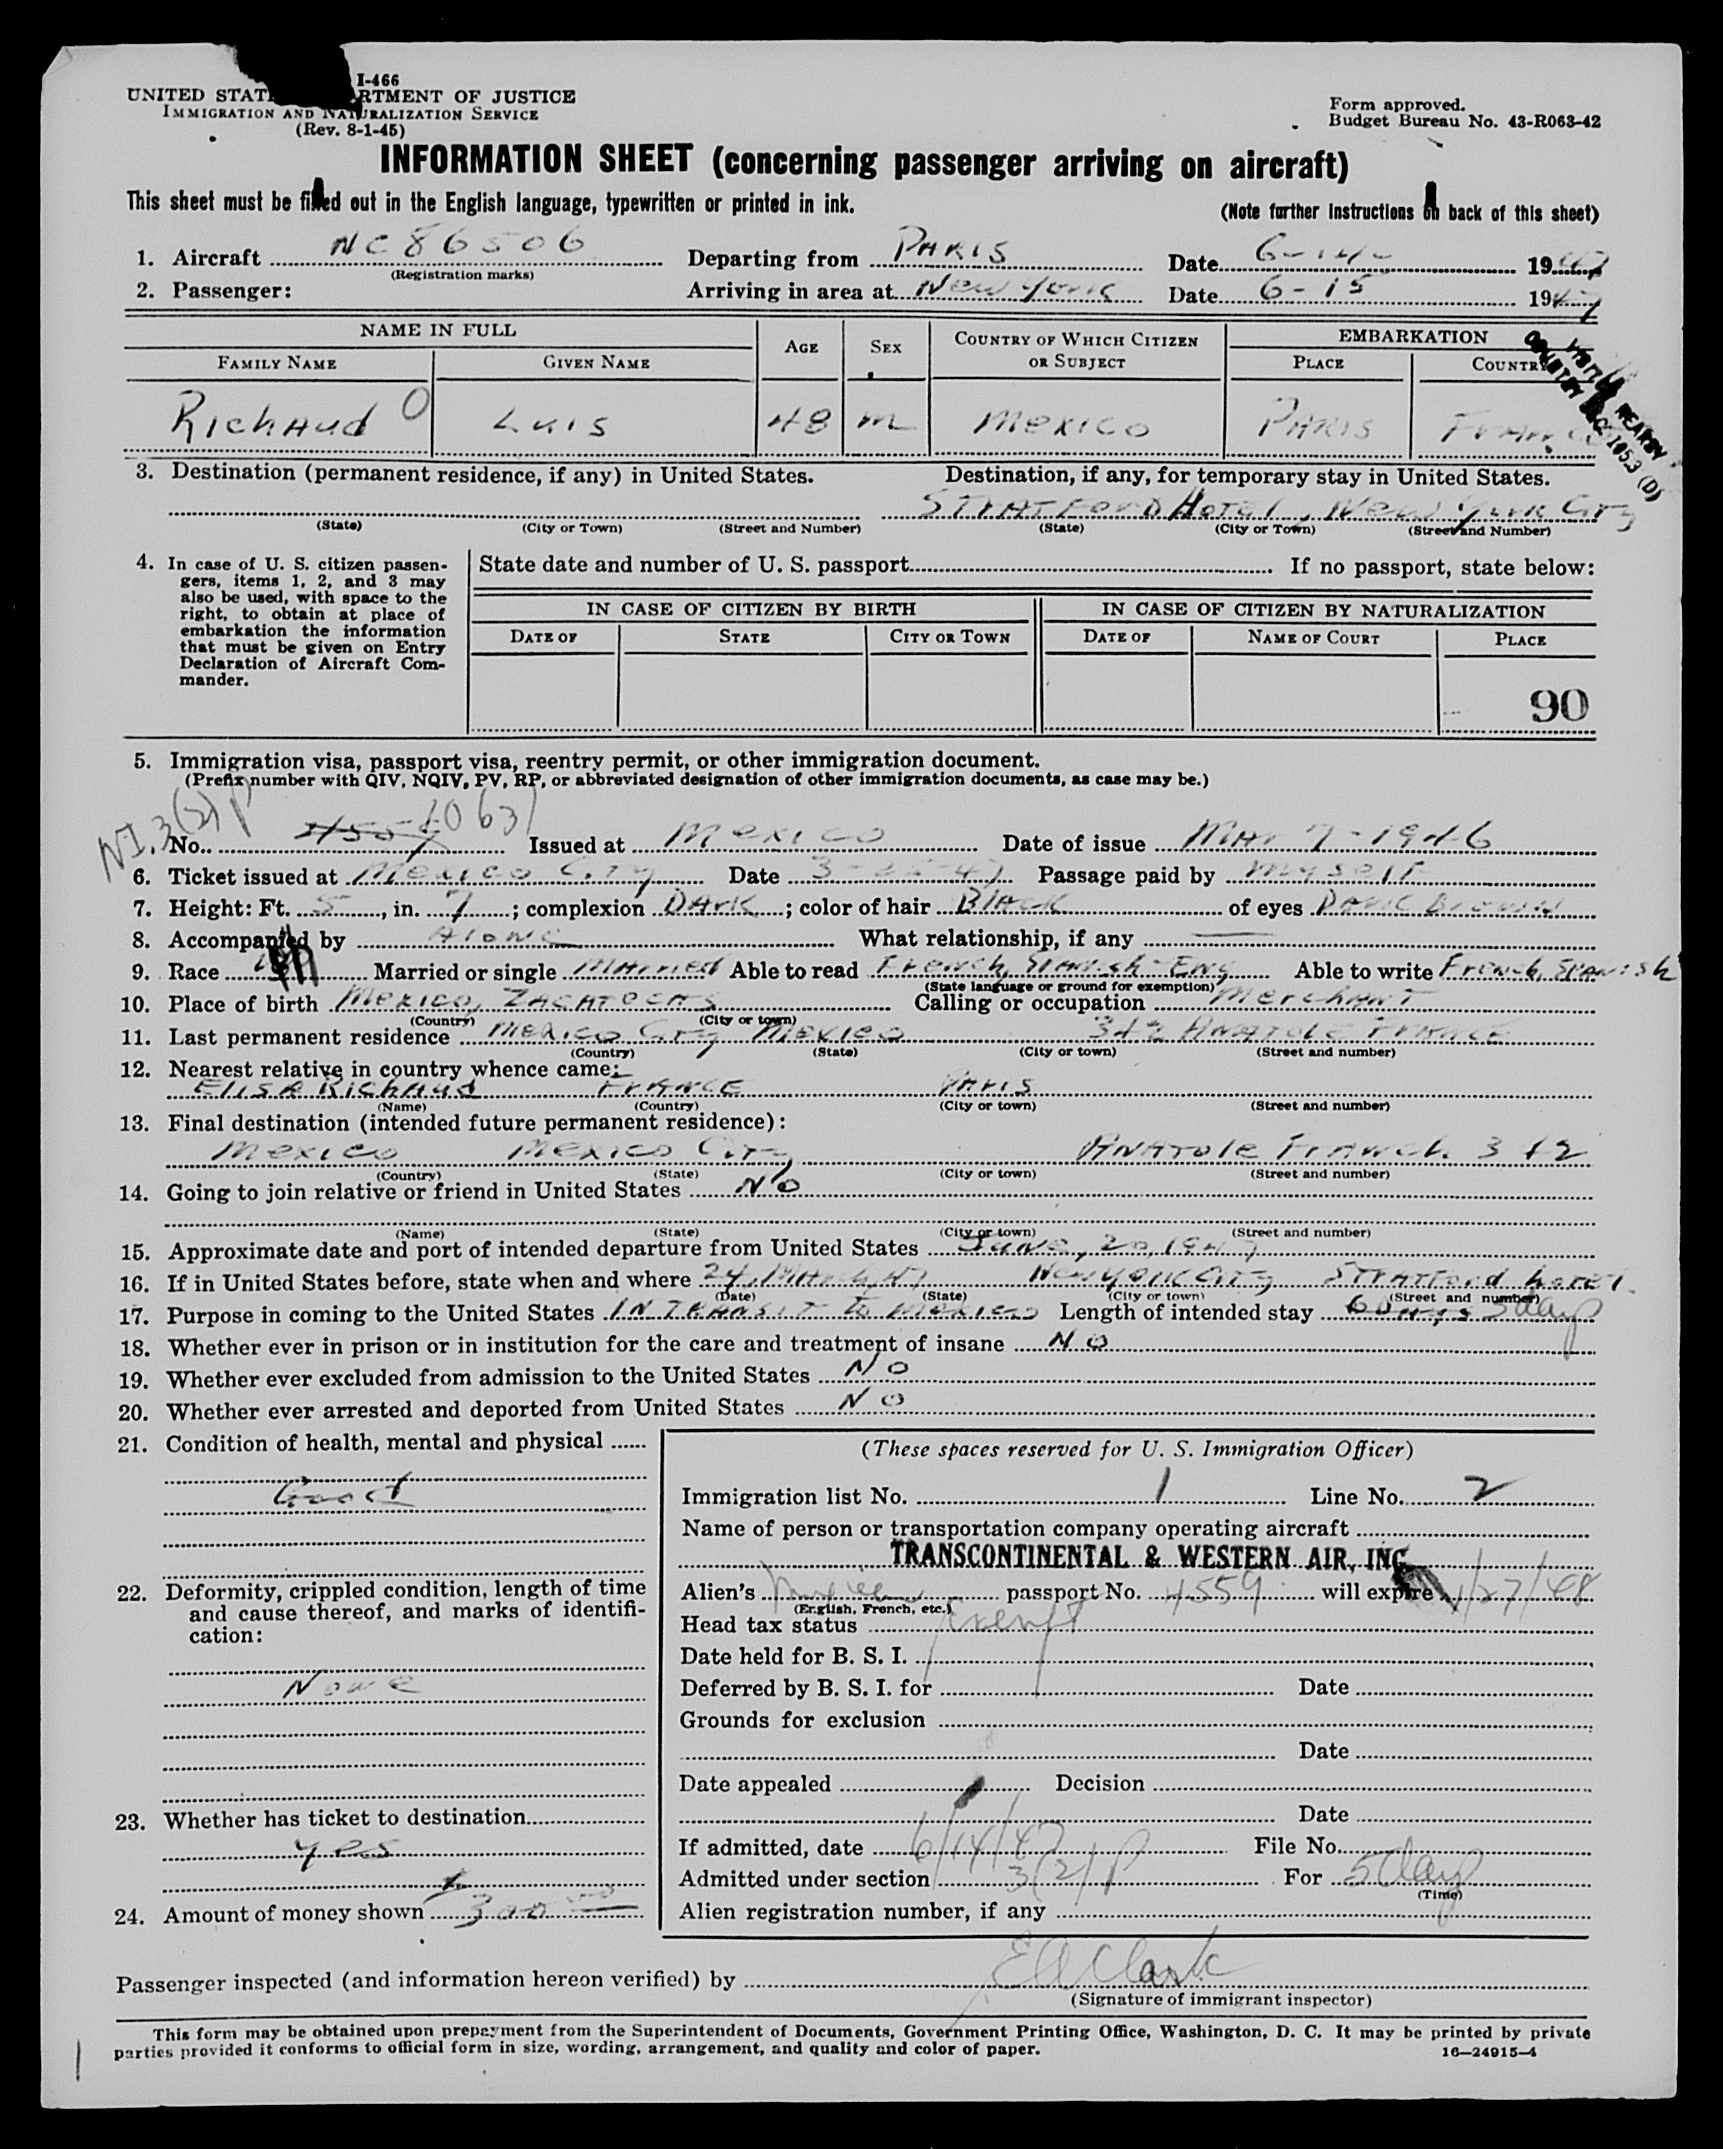 I-466
UNITED STAT RTMENT OF JUSTICE
IMMIGRATION AND NATURALIZATION SERVICE
(Rev. 8-1-45)
Form approved.
Budget Bureau No. 43-R063-42
INFORMATION SHEET (concerning passenger arriving on aircraft)
This sheet must be filled out in the English language, typewritten or printed in ink.
(Note further instructions on back of this sheet)
1. Aircraft NC86506 Departing from PARIS Date 6-14- 1947
(Registration marks)
2. Passenger: Arriving in area at New York Date 6-15 1947
NAME IN FULL AGE SEX COUNTRY OF WHICH CITIZEN OR SUBJECT EMBARKATION
FAMILY NAME GIVEN NAME PLACE COUNTRY
Richaud Luis 48 M Mexico PARIS France
3. Destination (permanent residence, if any) in United States. Destination, if any, for temporary stay in United States.
STRATFORD Hotel, New York City
(State) (City or Town) (Street and Number) (State) (City or Town) (Street and Number)
4. In case of U. S. citizen passengers, items 1, 2, and 3 may also be used, with space to the right, to obtain at place of embarkation the information that must be given on Entry Declaration of Aircraft Commander.
State date and number of U. S. passport If no passport, state below:
IN CASE OF CITIZEN BY BIRTH IN CASE OF CITIZEN BY NATURALIZATION
DATE OF STATE CITY OR TOWN DATE OF NAME OF COURT PLACE
90
5. Immigration visa, passport visa, reentry permit, or other immigration document.
(Prefix number with QIV, NQIV, PV, RP, or abbreviated designation of other immigration documents, as case may be.)
N.I. 3(2)P
No. 10631 Issued at Mexico Date of issue MAR 7-1946
6. Ticket issued at Mexico City Date 3-25-47 Passage paid by Myself
7. Height: Ft. 5, in. 7; complexion DARK; color of hair BLACK of eyes DARK BROWN
8. Accompanied by Alone What relationship, if any —
9. Race Married or single MARRIED Able to read French, Spanish Eng Able to write French, Spanish
(State language or ground for exemption)
10. Place of birth Mexico, ZACATECAS Calling or occupation MerchANT
(Country) (City or town)
11. Last permanent residence Mexico City Mexico 342 ANATOLE FRANCE
(Country) (State) (City or town) (Street and number)
12. Nearest relative in country whence came:
ELISA Richaud FRANCE PARIS
(Name) (Country) (City or town) (Street and number)
13. Final destination (intended future permanent residence):
Mexico Mexico City ANATOLE France 342
(Country) (State) (City or town) (Street and number)
14. Going to join relative or friend in United States NO
(Name) (State) (City or town) (Street and number)
15. Approximate date and port of intended departure from United States June, 20, 1947
16. If in United States before, state when and where 24, March, 47 New York City STRATford hotel
(Date) (State) (City or town) (Street and number)
17. Purpose in coming to the United States IN TRANSIT To Mexico Length of intended stay 6 DAYS 5 days
18. Whether ever in prison or in institution for the care and treatment of insane NO
19. Whether ever excluded from admission to the United States NO
20. Whether ever arrested and deported from United States NO
21. Condition of health, mental and physical
Good
22. Deformity, crippled condition, length of time and cause thereof, and marks of identification:
None
23. Whether has ticket to destination
yes
24. Amount of money shown 300 00
(These spaces reserved for U. S. Immigration Officer)
Immigration list No. 1 Line No. 2
Name of person or transportation company operating aircraft
TRANSCONTINENTAL & WESTERN AIR, INC
Alien's Mexican passport No. 4559 will expire 1/27/48
(English, French, etc.)
Head tax status Exempt
Date held for B. S. I.
Deferred by B. S. I. for Date
Grounds for exclusion
Date
Date appealed Decision
Date
If admitted, date 6/14/47 File No.
Admitted under section 3(2)P For 5 days
(Time)
Alien registration number, if any
Passenger inspected (and information hereon verified) by EA Clark
(Signature of immigrant inspector)
This form may be obtained upon prepayment from the Superintendent of Documents, Government Printing Office, Washington, D. C. It may be printed by private
parties provided it conforms to official form in size, wording, arrangement, and quality and color of paper.
16—24915-4